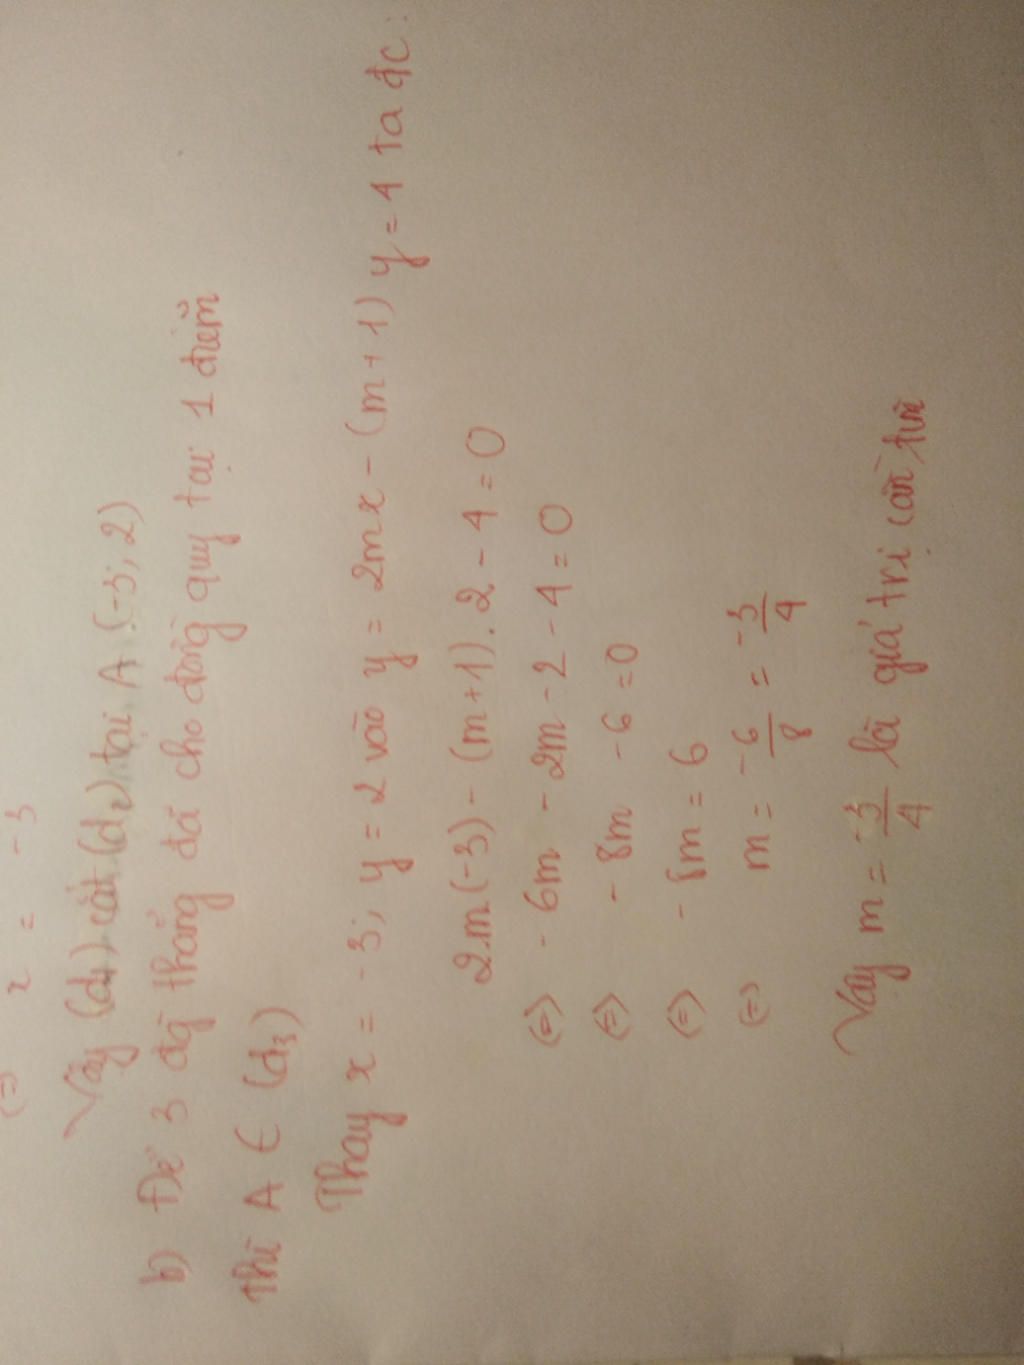 (=) x = -3
Vậy (d1) cắt (d2) tại A (-3; 2)
b) Để 3 đg thẳng đã cho đồng quy tại 1 điểm
thì A ∈ (d3)
Thay x = -3; y = 2 vào y = 2mx - (m + 1) y = 4 ta đc:
2m(-3) - (m+1). 2 - 4 = 0
(=) - 6m - 2m - 2 - 4 = 0
(=) - 8m - 6 = 0
(=) - 8m = 6
(=) m = -6/8 = -3/4
Vậy m = -3/4 là giá trị cần tìm